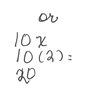 or
10x
10(2)=
20